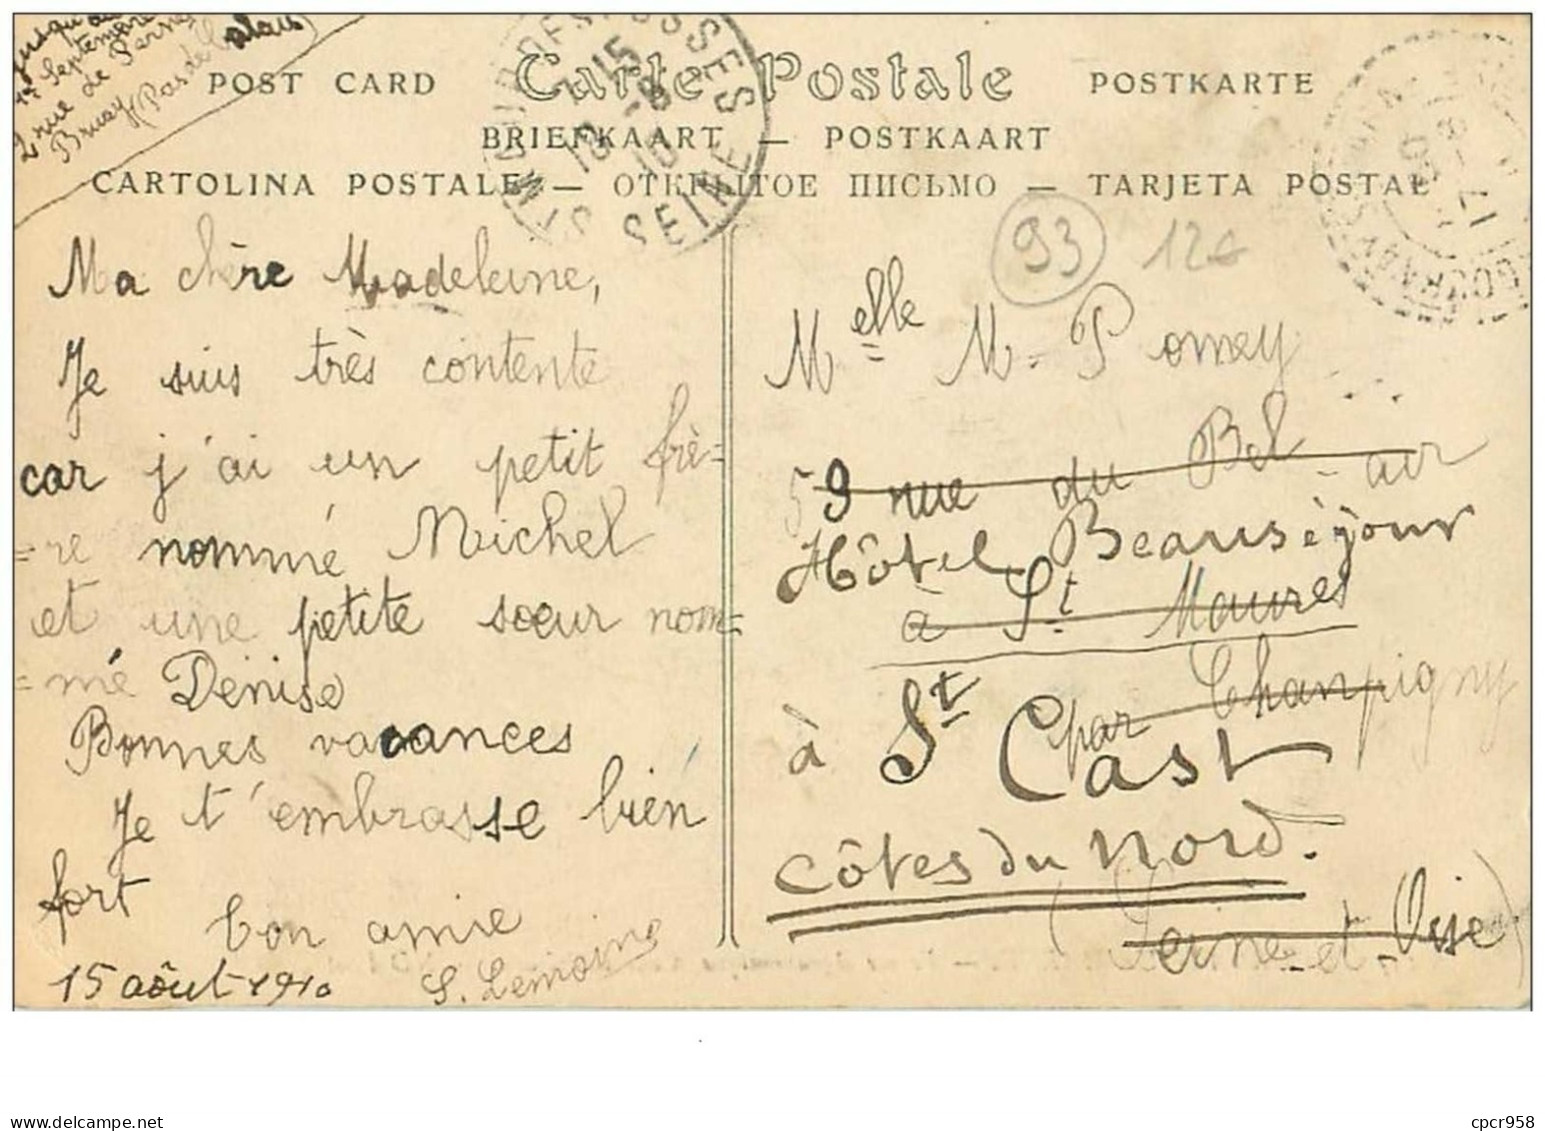 Jusqu'au
1r Septembre
2 rue de Pernes
Bruay (Pas de Calais)
POST CARD Carte Postale POSTKARTE
BRIEFKAART — POSTKAART
CARTOLINA POSTALE — ОТКРЫТОЕ ПИСЬМО — TARJETA POSTAL
SEINE
93
12
Ma chère Madeleine,
Je suis très contente
car j'ai un petit frè=
=re nommé Michel
et une petite soeur nom=
=mé Denise
Bonnes vacances
Je t'embrasse bien
fort
Ton amie
S. Lemoine
15 août 1910
Melle M. Pomey
59 rue du Bel-air
Hôtel Beauséjour
à St Maures
par Champigny
à St Cast
Côtes du Nord.
(Seine-et-Oise)
www.delcampe.net
cpcr958